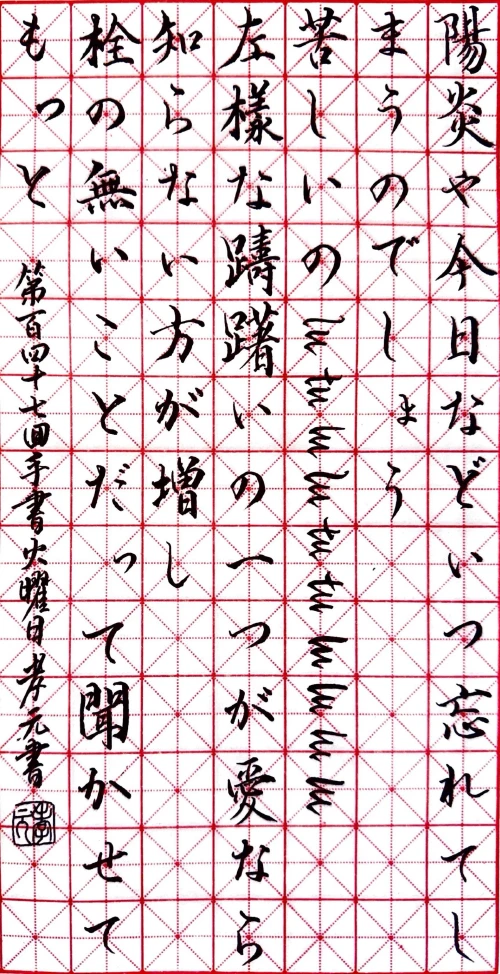 陽炎や今日などいつ忘れてし
まうのでしょう
苦しいの lu tu lu lu tu tu lu lu lu lu
左様な躊躇いの一つが愛なら
知らない方が増し
栓の無いことだって聞かせて
もっと
第百四十七回手書火曜日 孝元書
孝元